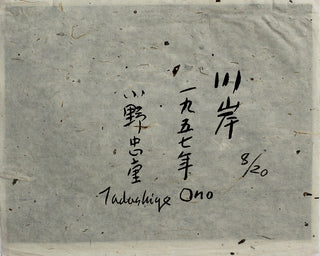 川岸
一九五七年
小野忠重
8/20
Tadashige Ono